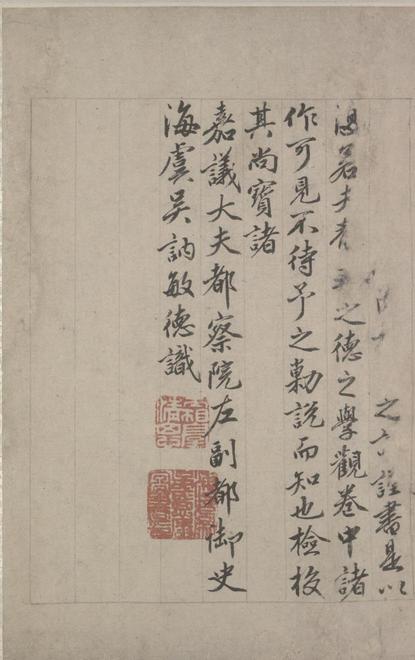 之書是以
若夫之德之學觀卷中諸
作可見不待予之勦說而知也檢校
其尚寶諸
嘉議大夫都察院左副都御史
海虞吳訥敏德識